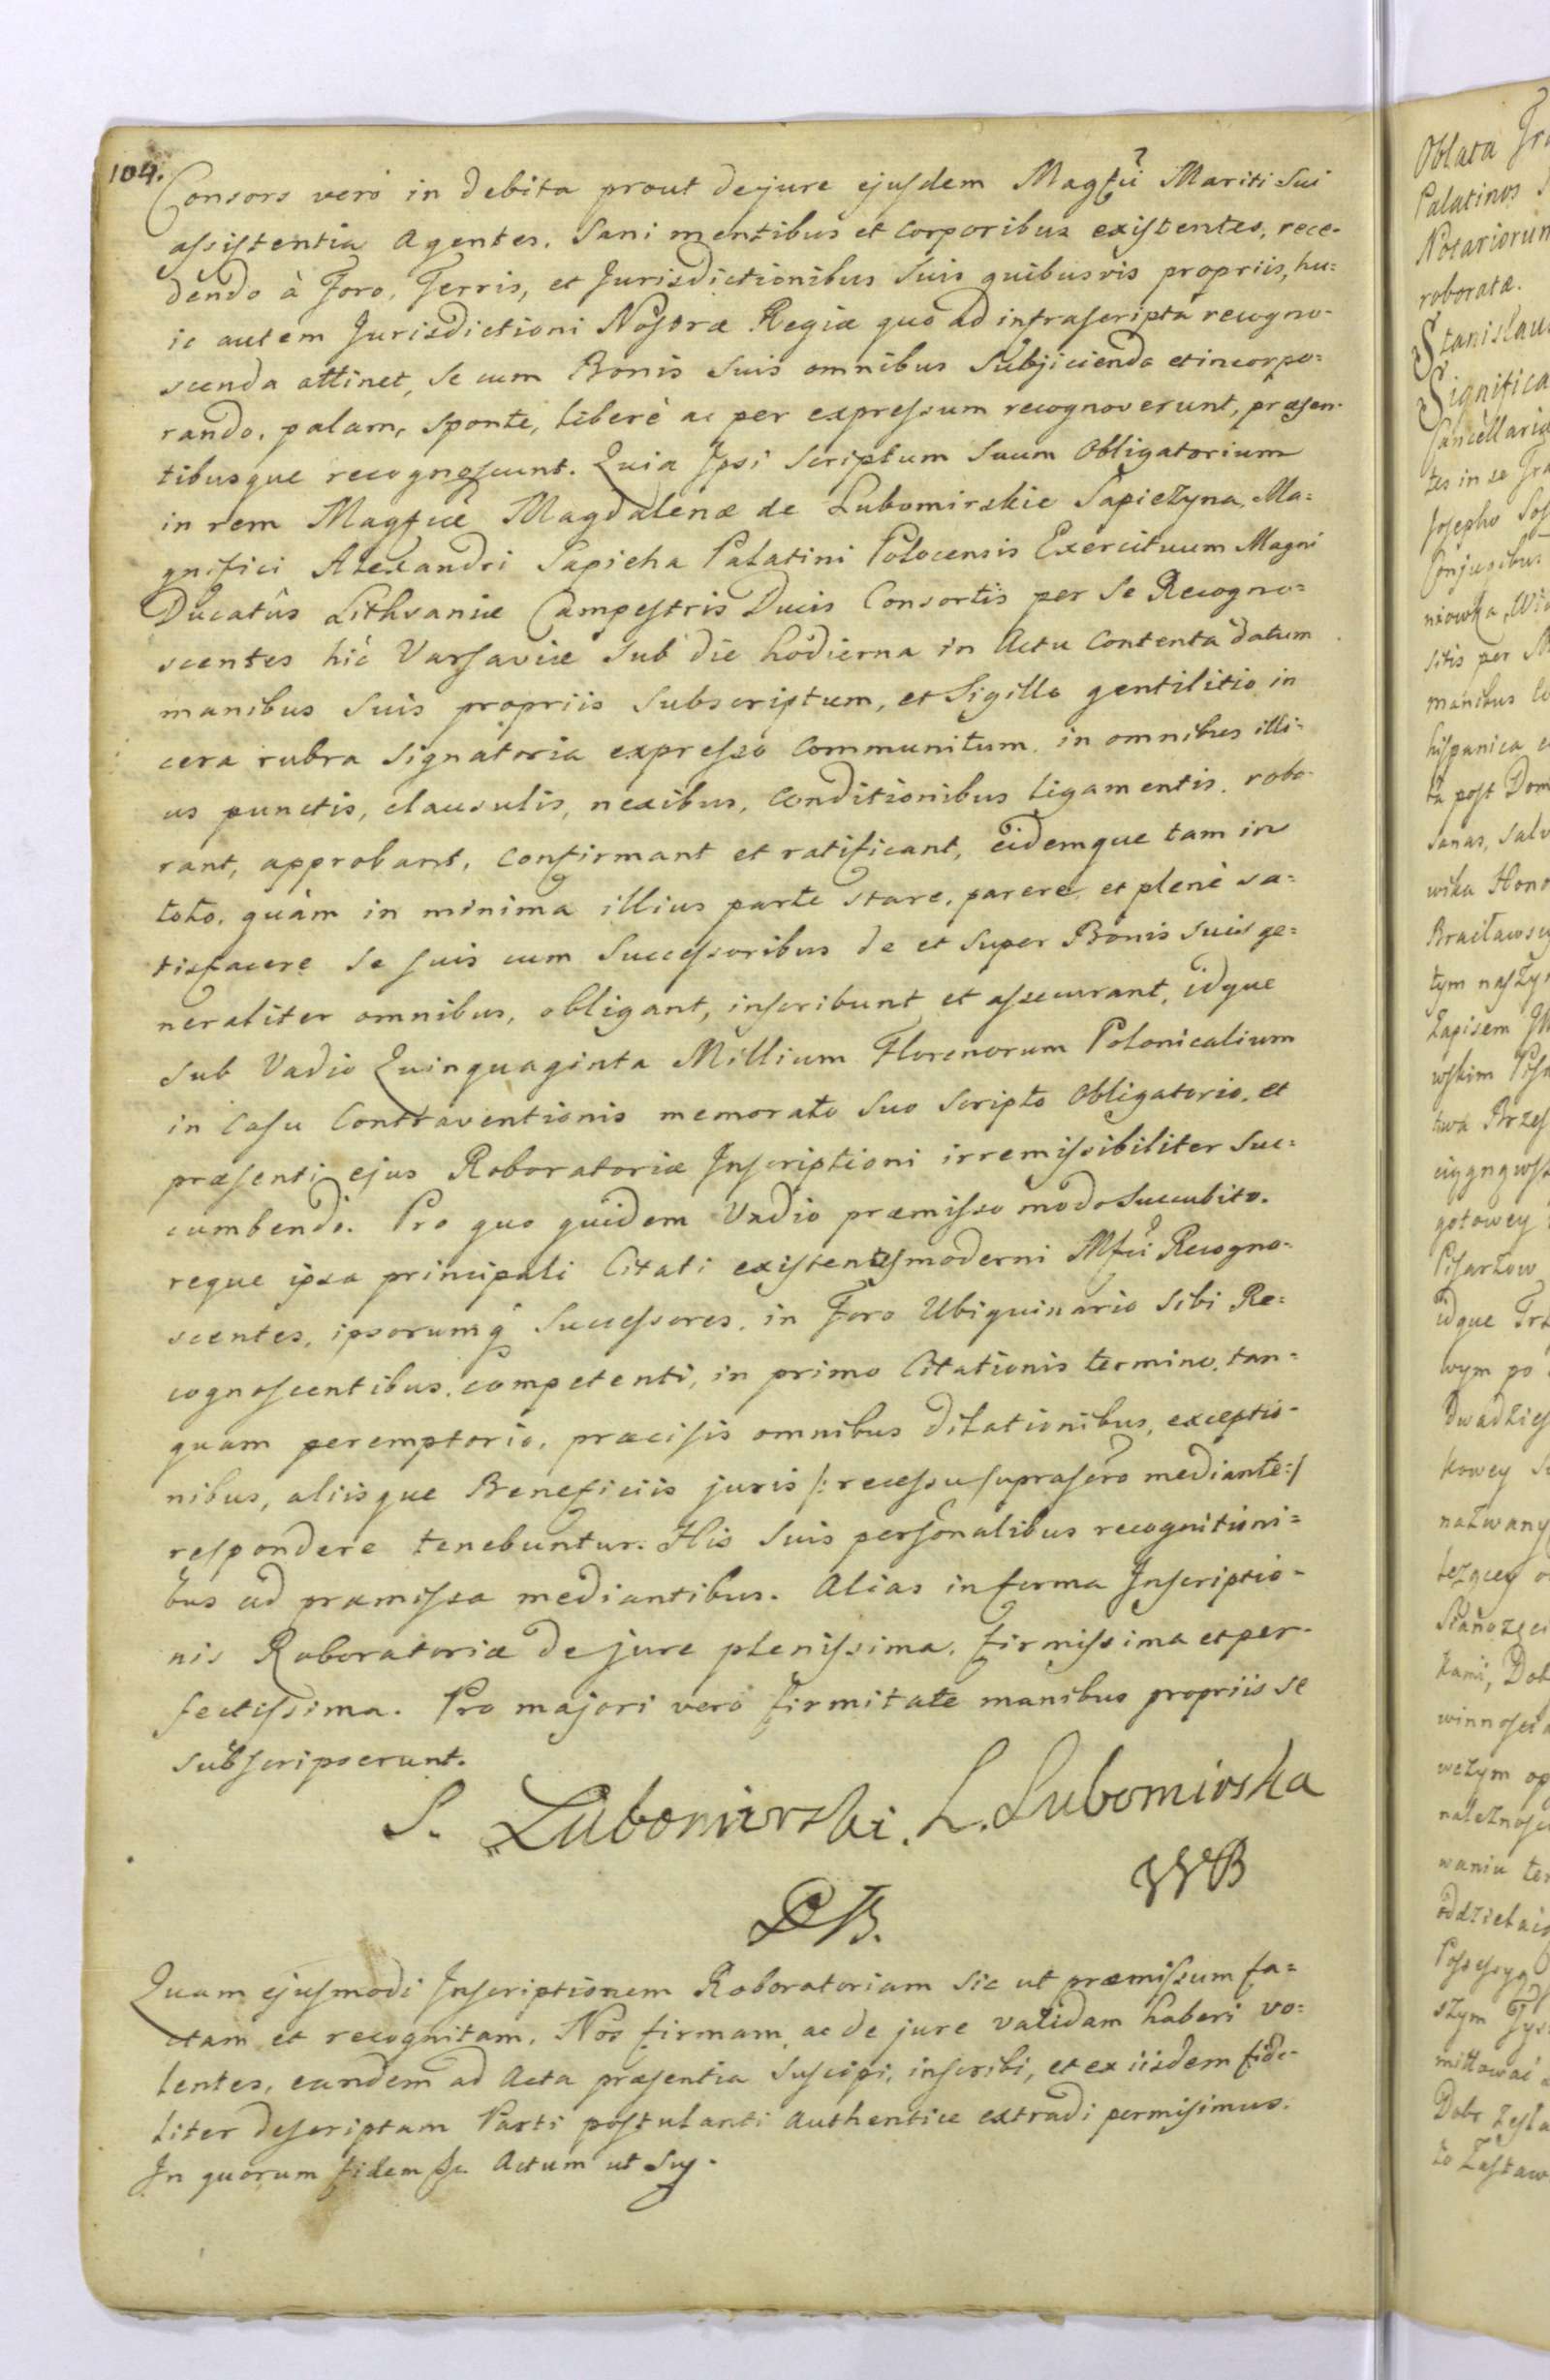 104.
Consors verò in debita prout de jure ejusdem Magfci Mariti sui
assistentia Agentes. Sani mentibus et corporibus existentes, rece-
dendo à Foro, Terris, et Jurisdictionibus suis quibusvis propriis, hu=
ic autem Jurisdictioni Nostræ Regiæ quo ad infrascripta recogno-
scenda attinet, se cum Bonis suis omnibus subjiciendo et incorpo=
rando, palam, sponte, liberè ac per expressum recognoverunt, præsen-
tibusque recognoscunt. Quia Ipsi scriptum suum Obligatorium
in rem Magfcæ Magdalenæ de Lubomirskie Sapieżyna, Ma=
gnifici Alexandri Sapieha Palatini Polocensis Exercituum Magni
Ducatûs Lithvaniæ Campestris Ducis Consortis per se Recogno=
scentes hîc Varsaviæ sub die hodierna in Actu contenta datum
manibus suis propriis subscriptum, et sigillo gentilitio in
cera rubra signatoria expresso communitum. in omnibus illi=
us punctis, clausulis, nexibus, conditionibus ligamentis. robo-
rant, approbant, confirmant et ratificant, eidemque tam in
toto, quàm in minima illius parte stare, parere, et plenè sa=
tisfacere se suis cum successoribus de et super Bonis suis ge=
neraliter omnibus, obligant, inscribunt et assecurant, idque
sub Vadio Quinquaginta Millium Florenorum Polonicalium
in casu contraventionis memorato suo scripto obligatorio, et
præsenti ejus Roboratoriæ Inscriptioni irremissibiliter suc=
cumbendo. Pro quo quidem Vadio præmisso modo succubito.
reque ipsa principali Citati existentes moderni Mfci Recogno=
scentes, ipsorumq successores. in Foro Ubiquinario sibi Re=
cognoscentibus. competenti, in primo Citationis termino, tan=
quam peremptorio, præcisis omnibus dilationibus, exceptio-
nibus, aliisque Beneficiis juris /: recessu suprascro mediante :/
respondere tenebuntur. His suis personalibus recognitioni=
bus ad præmissa mediantibus. Alias in forma Inscriptio=
nis Roboratoriæ de jure plenissima, firmissima et per-
fectissima. Pro majori verò firmitate manibus propriis se
subscripserunt.
S. Lubomirski. L. Lubomirska
WB
PB.
Quam ejusmodi Inscriptionem Roboratoriam sic ut præmissum fa=
ctam et recognitam. Nos firmam ac de jure validam haberi vo=
lentes, eandem ad Acta præsentia suscipi, inscribi, et ex iisdem fide-
liter descriptam Parti postulanti authentice extradi permisimus.
In quorum fidem &c. Actum ut sup.
Oblata
Palatinos
Notariorum
roborata.
Stanislaus
Significa
Cancellaria
tes in se
Josepho
Conjugibus
sitis per
manibus
hispanica
ta post Dom
sanas, salv
wika Hono
Bracławsc
tym naszy
Zapisem
wskim
twa Brzes
gotowey
Pisarzow
idque
wym po
Dwadzies
kowey
nazwany
kami, Dob
winnosci
wezym op
naleznosc
waniu
Possessyą
szym
Dobr zesta
to Zastaw